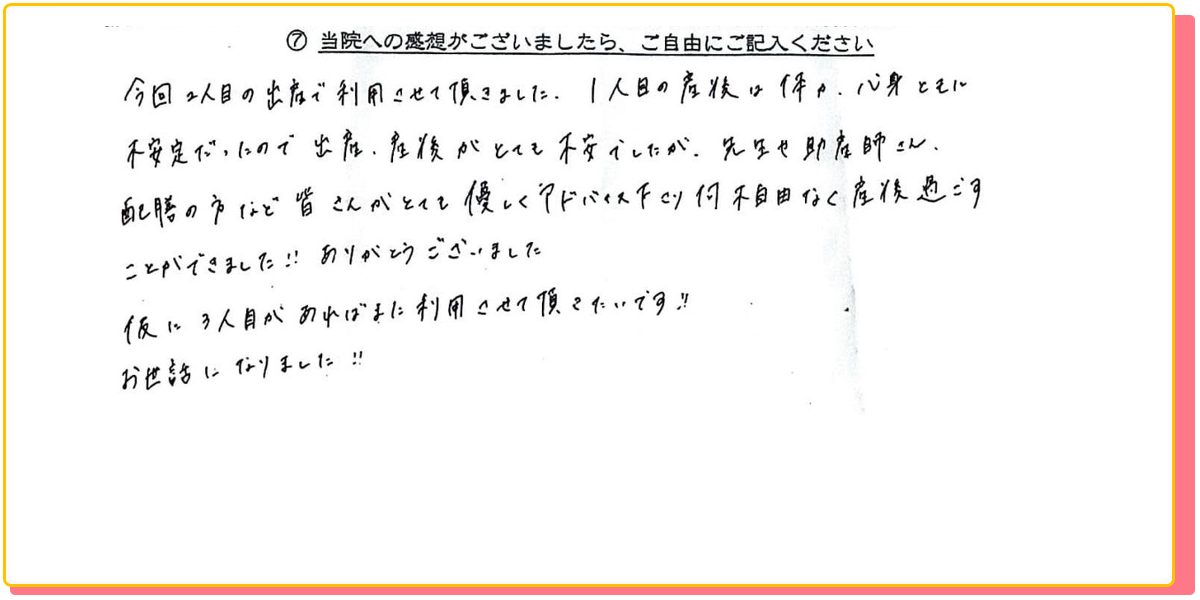 ⑦ 当院への感想がございましたら、ご自由にご記入ください
今回2人目の出産で利用させて頂きました。1人目の産後は体力、心身ともに
不安定だったので出産、産後がとても不安でしたが、先生や助産師さん、
配膳の方など皆さんがとても優しくアドバイス下さり何不自由なく産後過ごす
ことができました!! ありがとうございました
仮に3人目があればまた利用させて頂きたいです!!
お世話になりました!!